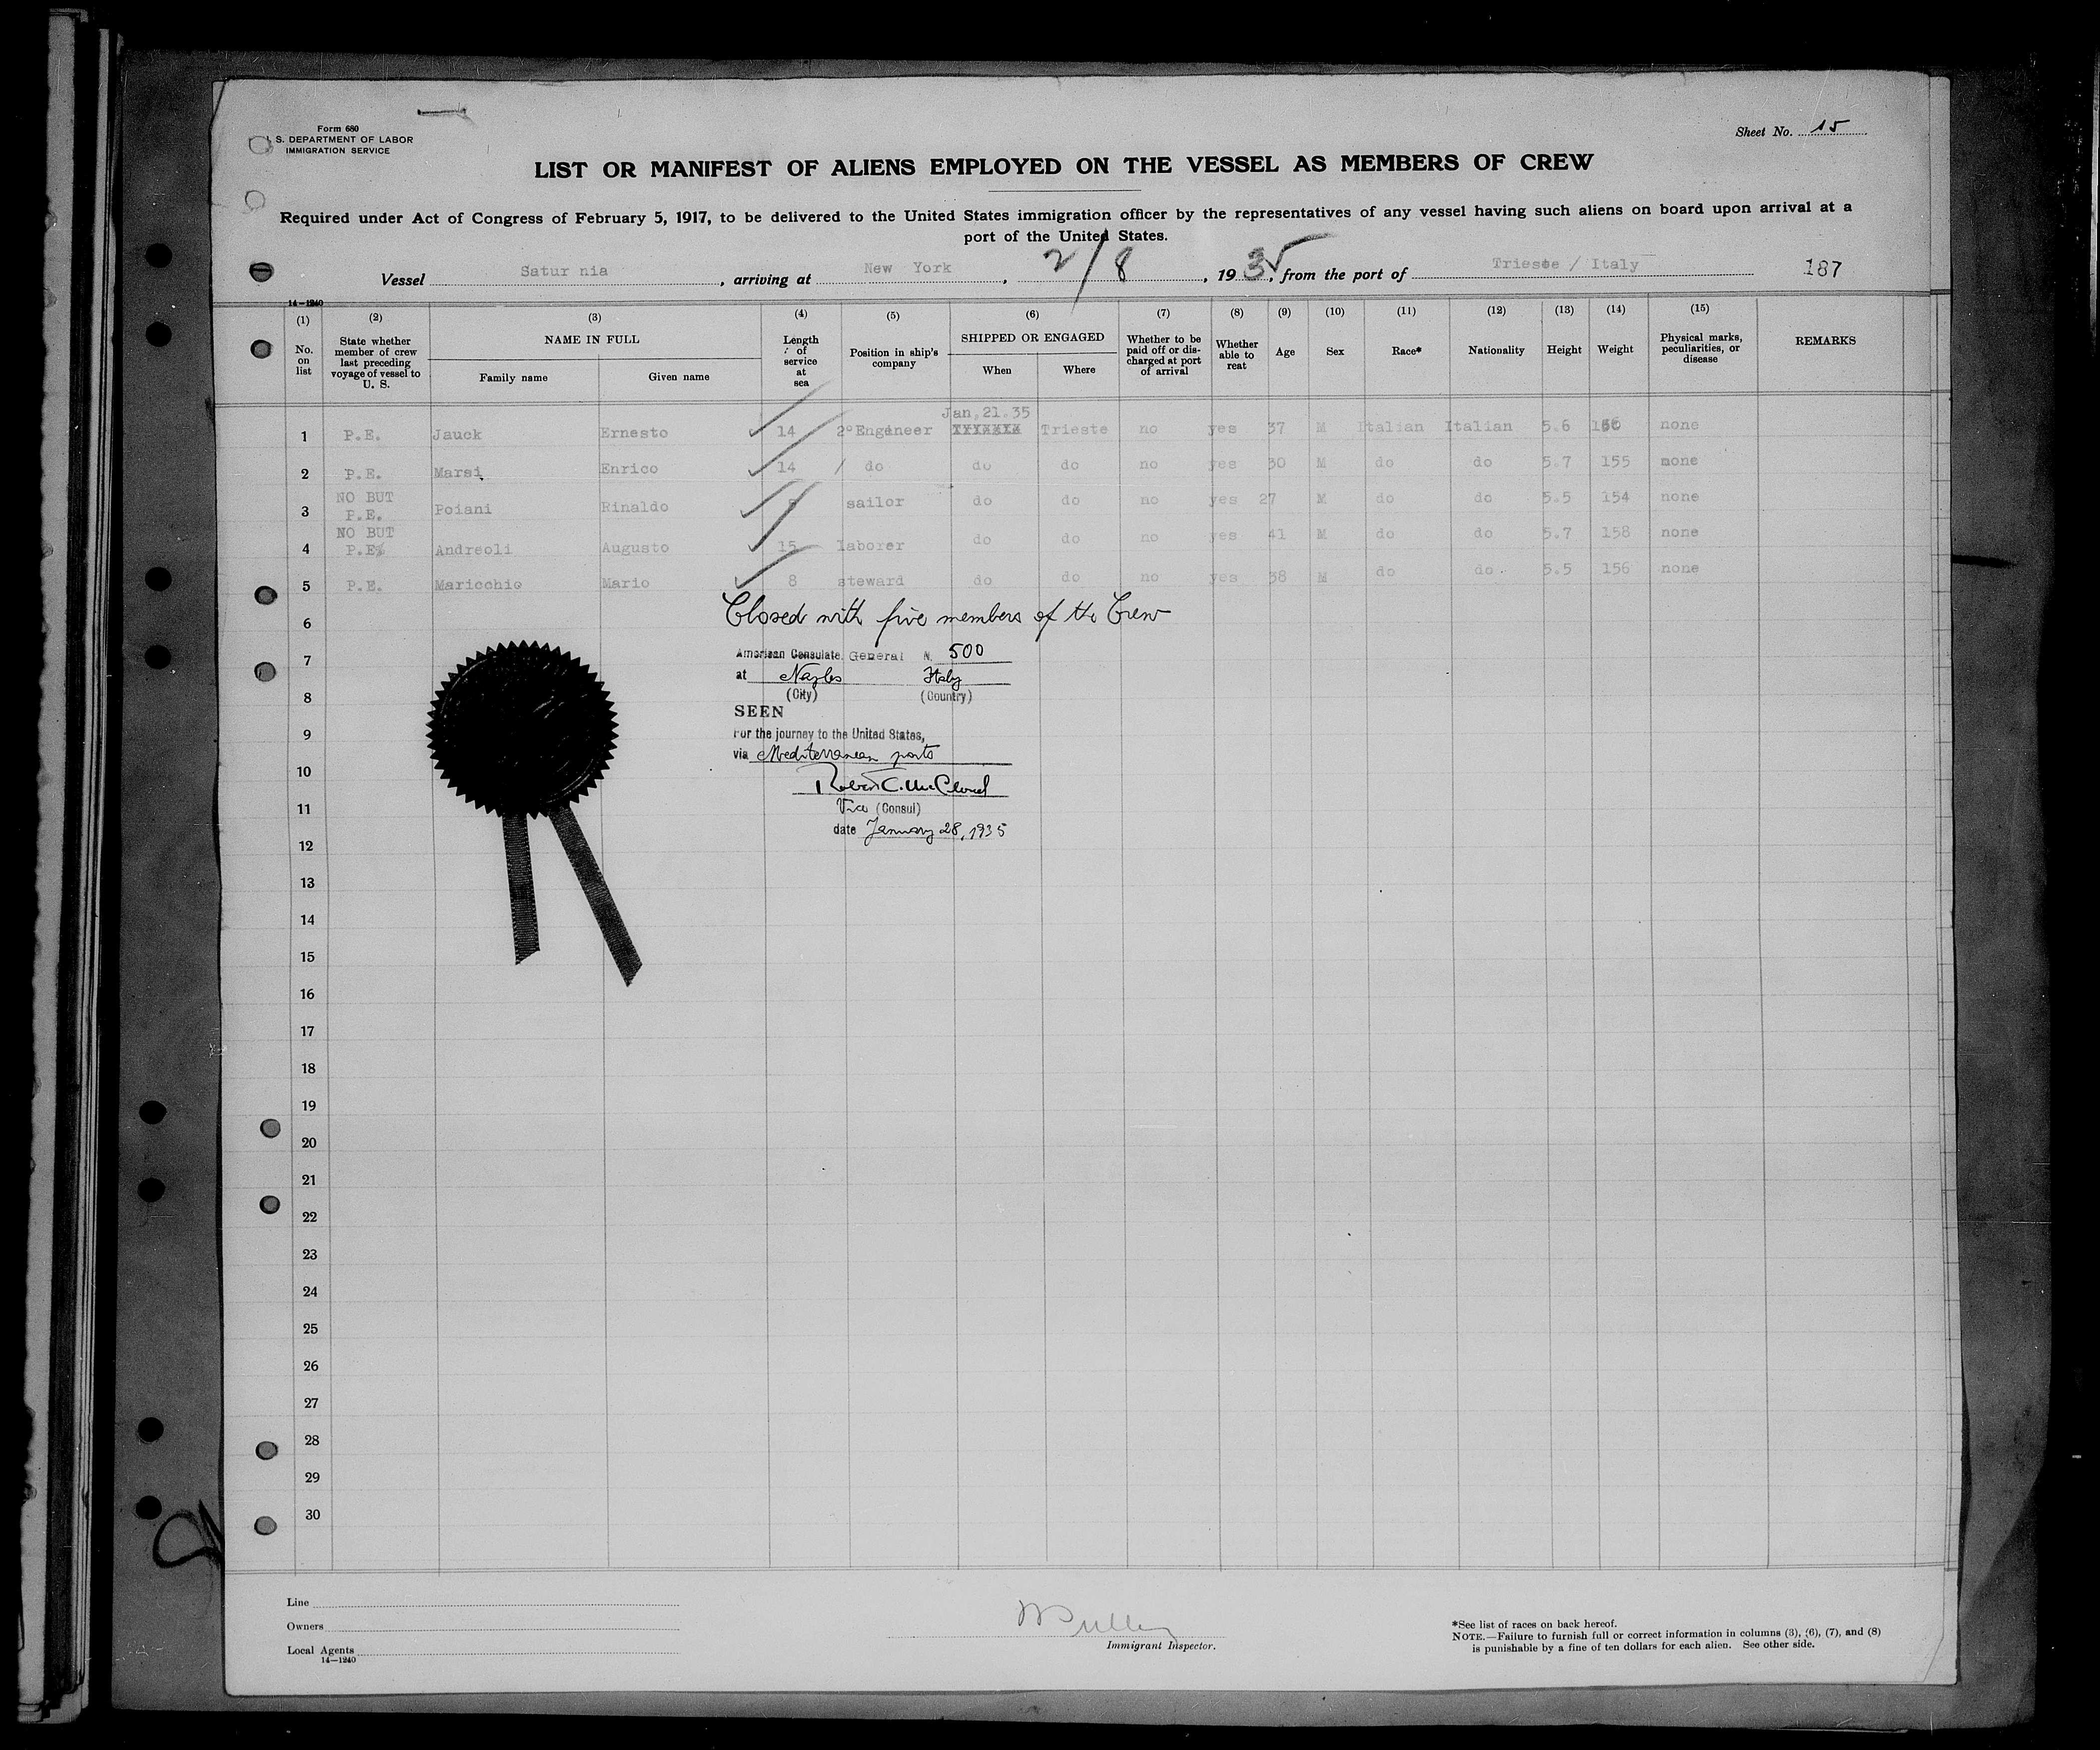 Form 680
S. DEPARTMENT OF LABOR
IMMIGRATION SERVICE
Sheet No. 15
LIST OR MANIFEST OF ALIENS EMPLOYED ON THE VESSEL AS MEMBERS OF CREW
Required under Act of Congress of February 5, 1917, to be delivered to the United States immigration officer by the representatives of any vessel having such aliens on board upon arrival at a
port of the United States.
Vessel Satur nia, arriving at New York, 2/8, 1935, from the port of Trieste / Italy 187
14-1240
(1) No. on list (2) State whether member of crew last preceding voyage of vessel to U. S. (3) NAME IN FULL Family name Given name (4) Length of service at sea (5) Position in ship's company (6) SHIPPED OR ENGAGED When Where (7) Whether to be paid off or discharged at port of arrival (8) Whether able to reat (9) Age (10) Sex (11) Race* (12) Nationality (13) Height (14) Weight (15) Physical marks, peculiarities, or disease REMARKS
Jan. 21. 35
1 P.E. Jauck Ernesto 14 2° Engineer XXXXXXX Trieste no yes 37 M Italian Italian 5.6 none
2 P.E. Marsi Enrico 14 / do do do no yes 30 M do do 5.7 155 none
NO BUT
3 P.E. Poiani Rinaldo sailor do do no yes 27 M do do 5.5 154 none
NO BUT
4 P.E. Andreoli Augusto 15 laborer do do no yes 41 M do do 5.7 158 none
5 P.E. Maricchio Mario 8 steward do do no yes 38 M do do. 5.5 156 none
Closed with five members of the Crew
6
American Consulate General N. 500
7
at Naples Italy
(City) (Country)
8
SEEN
9
For the journey to the United States,
via Mediterranean ports
10
Robert C. McCloud
11
Vice (Consul)
date January 28, 1935
12
13
14
15
16
17
18
19
20
21
22
23
24
25
26
27
28
29
30
Line
Owners
Local Agents
14-1240
Immigrant Inspector.
*See list of races on back hereof.
NOTE.—Failure to furnish full or correct information in columns (3), (6), (7), and (8)
is punishable by a fine of ten dollars for each alien. See other side.